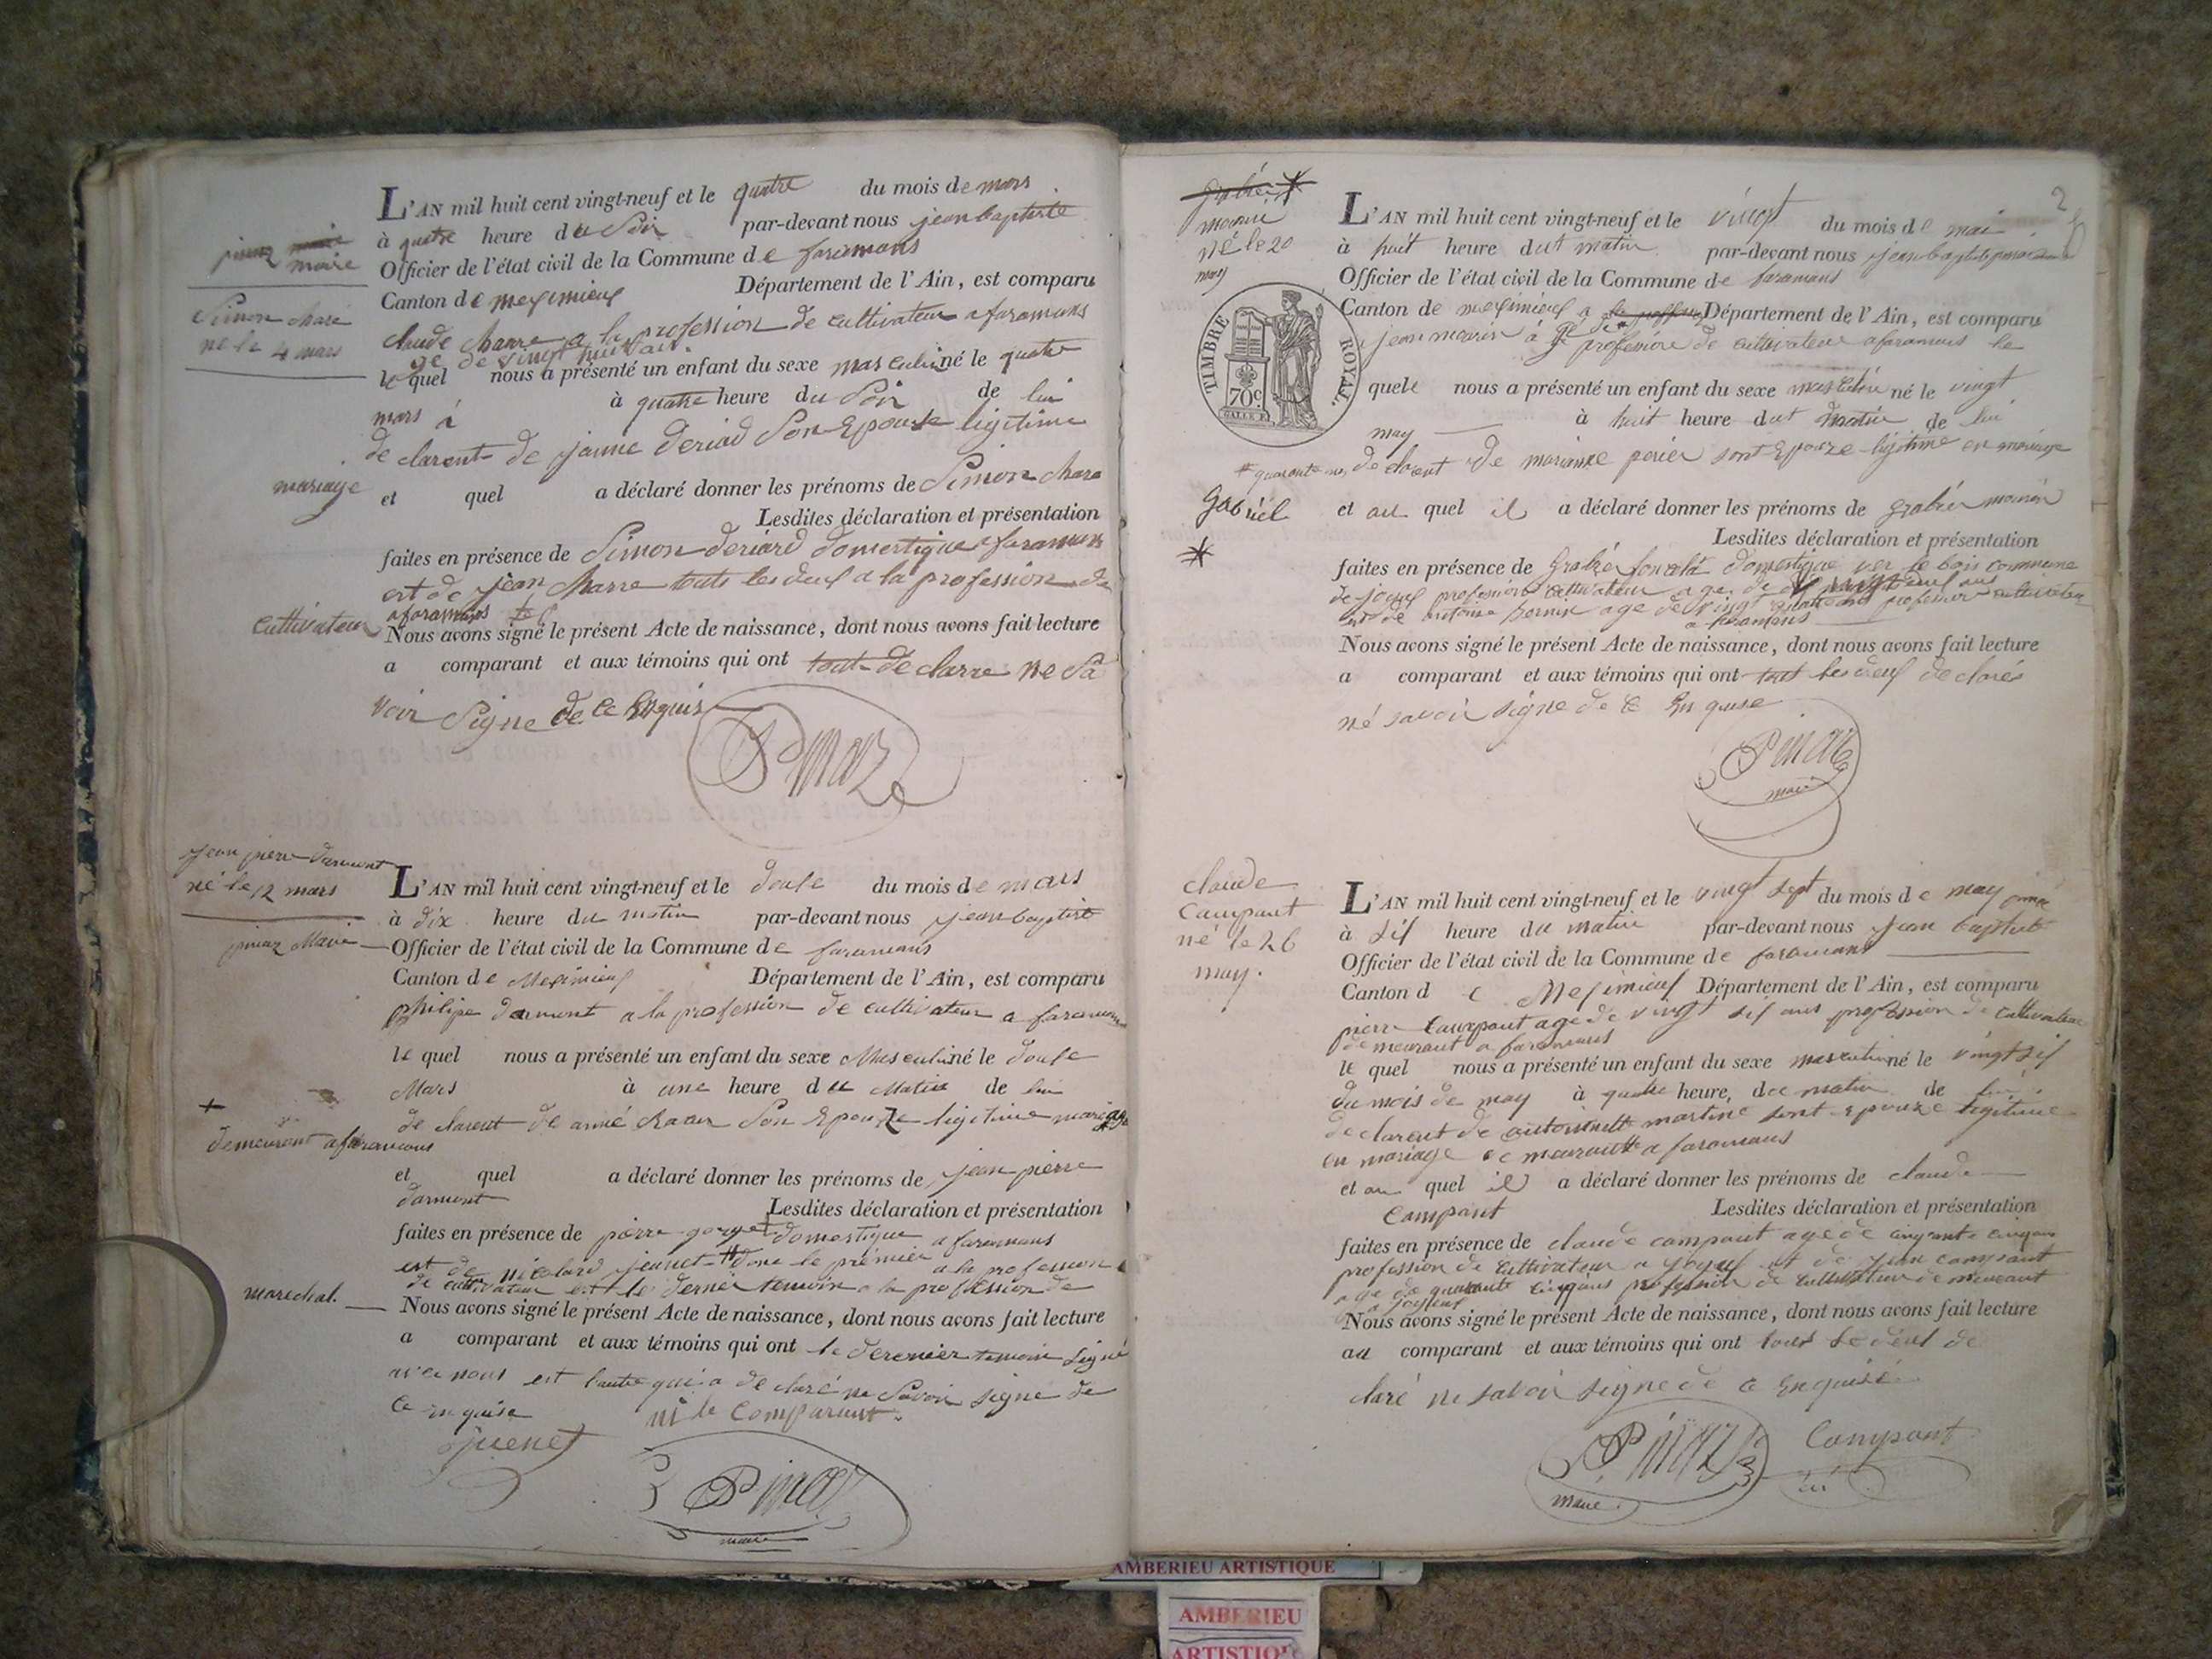 L'AN mil huit cent vingt-neuf et le quatre du mois de mars
à quatre heure du Soir par-devant nous jean baptiste
pinaz maire
Officier de l'état civil de la Commune de faramans
Canton de meximieux Département de l'Ain, est comparu
Simon chare
né le 4 mars
claude charre a la profession de cultivateur a faramans
age de vingt huit ans
le quel nous a présenté un enfant du sexe masculin né le quatre
mars à à quatre heure du Soir de lui
de clarent de jeanne deriad Son Epouse ligitime
mariage
et quel a déclaré donner les prénoms de Simon chare
Lesdites déclaration et présentation
faites en présence de Simon deriard domestique a faramans
est de jean charre touts les deux a la profession de
cultivateur
a faramans
Nous avons signé le présent Acte de naissance, dont nous avons fait lecture
a comparant et aux témoins qui ont tout de clarre ne Sa
voir Signe de Ce Enquis
Pinaz
jean pierre darmont
né le 12 mars
pinaz Maire
L'AN mil huit cent vingt-neuf et le douse du mois de mars
à dix heure du matin par-devant nous jean baptist
Officier de l'état civil de la Commune de faramans
Canton de Meximieux Département de l'Ain, est comparu
philipe darmont a la profession de cultivateur a faramans
le quel nous a présenté un enfant du sexe Masculin né le douse
Mars à une heure du Matin de lui
de clarent de anné Son Epouze ligitime mariage
+
demeurent a faramans
et quel a déclaré donner les prénoms de jean pierre
darmont
Lesdites déclaration et présentation
faites en présence de pierre domestique a faramans
est de jeunet donc le premier a la profession
de cultivateur est le dernier temoin a la profession de
marechal.
Nous avons signé le présent Acte de naissance, dont nous avons fait lecture
a comparant et aux témoins qui ont le derenier temoin Signé
avec nous est l'autre qui a de claré ne Savoir signe de
Ce enquise ni le Comparant
Pinaz
maire
2
mai
né le 20
may
L'AN mil huit cent vingt-neuf et le vingt du mois de mai
à huit heure dut matin par-devant nous jean baptiste
Officier de l'état civil de la Commune de faramans
Canton de meximieux Département de l'Ain, est comparu
TIMBRE ROYAL.
70c
jean à profession de cultivateur a faramans le
quele nous a présenté un enfant du sexe masculin né le vingt
may à huit heure dut matin de lui
de clarent de marianne perier sont Epouze ligitime en mariage
Gabriel
et au quel il a déclaré donner les prénoms de
Lesdites déclaration et présentation
*
faites en présence de domestique commune
de joyeux profession cultivateur age de
est de antoine age de vingt quatre ans profession cultivateur
a faramans
Nous avons signé le présent Acte de naissance, dont nous avons fait lecture
a comparant et aux témoins qui ont tout les deux declarés
né savoir signe de Ce Enquise
Pinaz
maire
claude
Campant
né le 26
may.
L'AN mil huit cent vingt-neuf et le vingt sept du mois de may
à six heure du matin par-devant nous jean baptiste
Officier de l'état civil de la Commune de faramans
Canton d e Meximieux Département de l'Ain, est comparu
pierre Campant age de vingt six ans profession de cultivateur
demeurant a faramans
le quel nous a présenté un enfant du sexe masculin né le vingt six
du mois de may à quatre heure, du matin de lui
declarent de antoinette martine sont epouze legitime
en mariage demeurant a faramans
et au quel il a déclaré donner les prénoms de claude
Campant Lesdites déclaration et présentation
faites en présence de claude campant age de
profession de cultivateur a joyeux et de jean campant
age de quarante cinq ans profession de cultivateur demeurant
a joyeux
Nous avons signé le présent Acte de naissance, dont nous avons fait lecture
au comparant et aux témoins qui ont tous le deux de
claré ne savoir signe de ce Enquise
Pinaz Campant
maire
AMBERIEU ARTISTIQUE
AMBERIEU